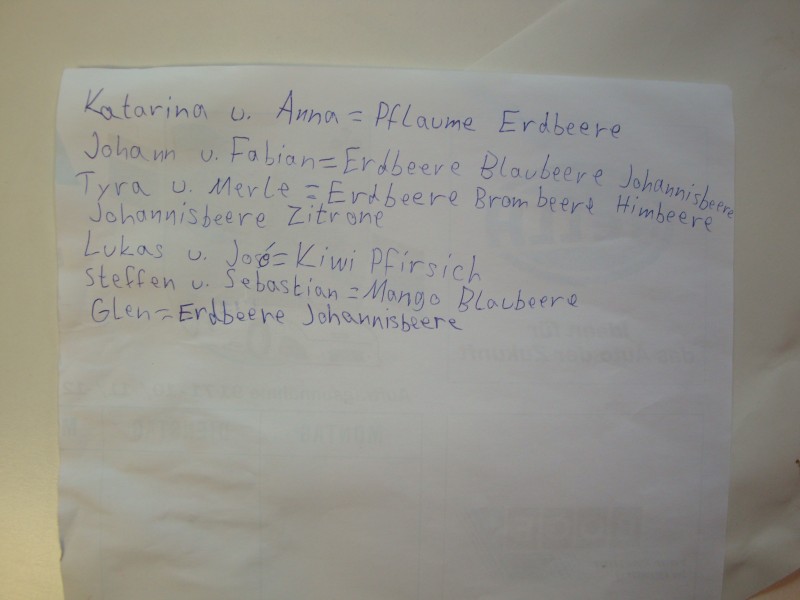 Katarina u. Anna = Pflaume Erdbeere
Johann u. Fabian = Erdbeere Blaubeere Johannisbeere
Tyra u. Merle = Erdbeere Brombeere Himbeere
Johannisbeere Zitrone
Lukas u. José = Kiwi Pfirsich
Steffen u. Sebastian = Mango Blaubeere
Glen = Erdbeere Johannisbeere